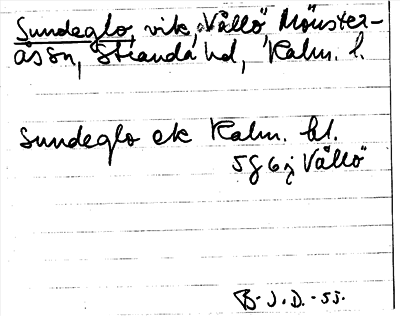 Sundeglo, vik, Vållö Mönster-
ås sn, Stranda hd, Kalm. l.
Sundeglo ek Kalm. bl.
5g6j Vållö
B.J.D.-55.